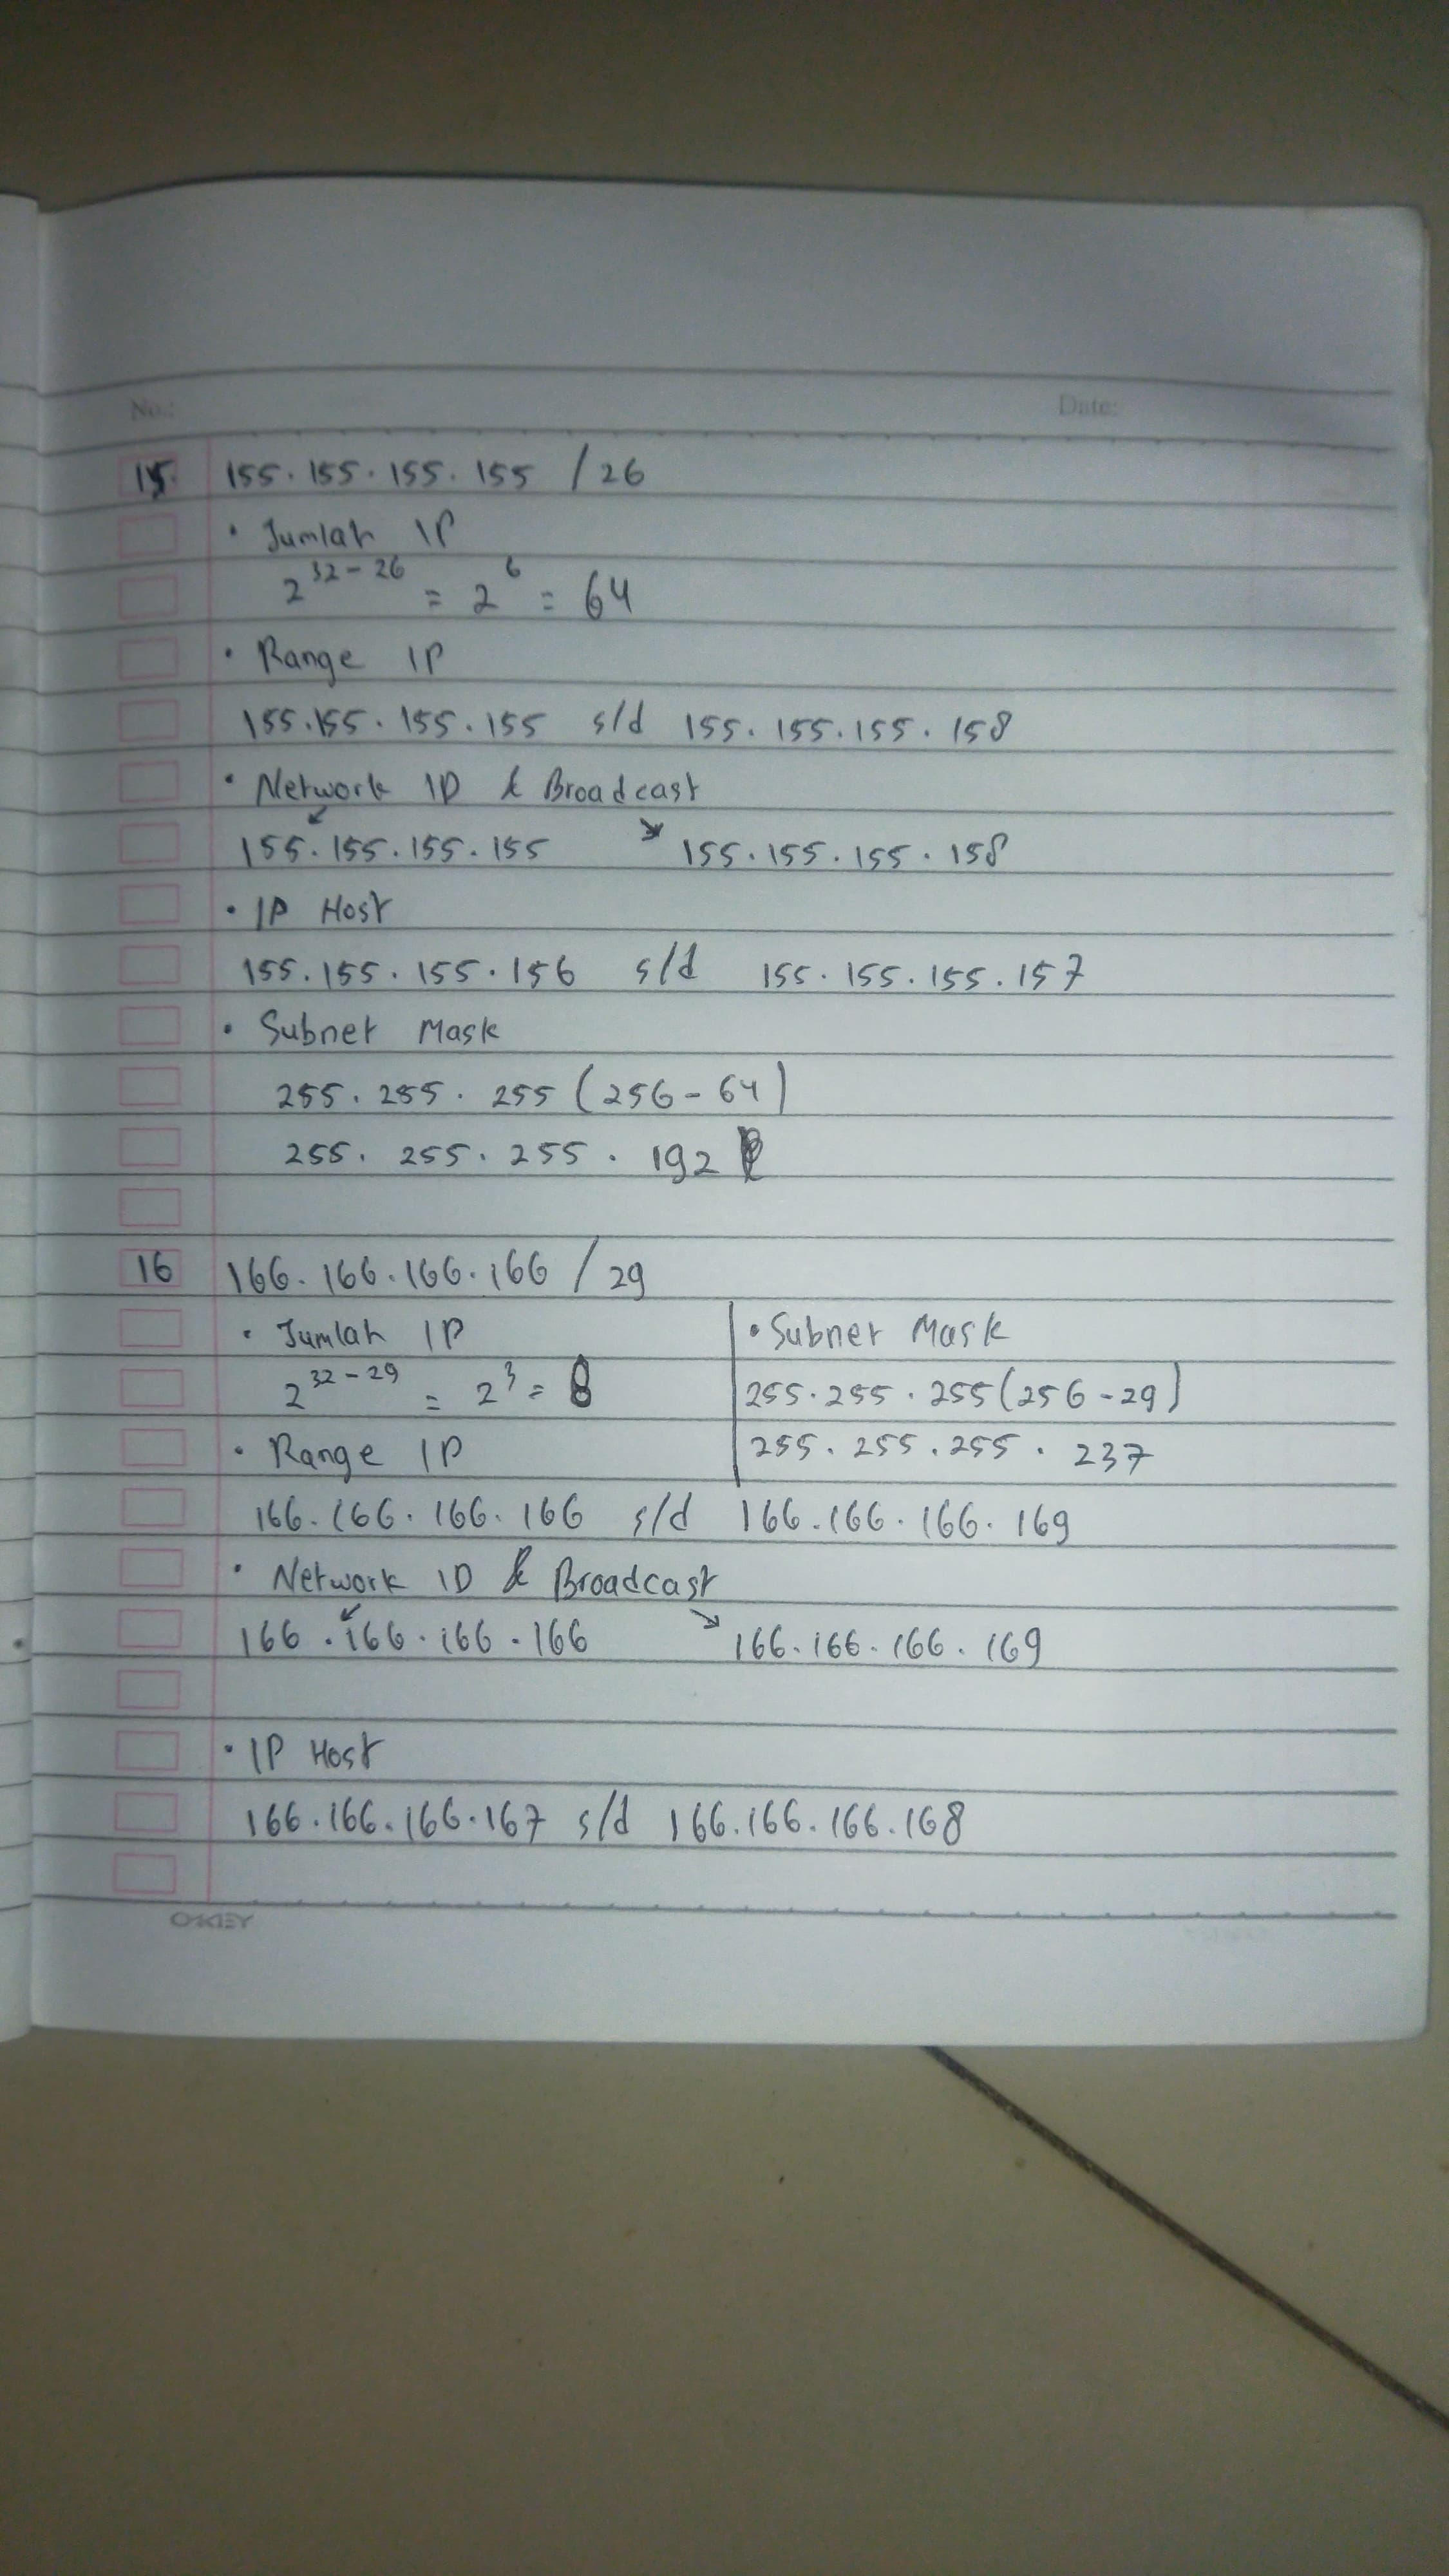 No.:
Date:
15. 155.155.155.155 /26
• Jumlah IP
2^32-26 = 2^6 = 64
• Range IP
155.155.155.155 s/d 155.155.155.158
• Network ID & Broadcast
155.155.155.155 155.155.155.158
• IP Host
155.155.155.156 s/d 155.155.155.157
• Subnet Mask
255.255.255 (256-64)
255.255.255.192
16 166.166.166.166 /29
• Jumlah IP
2^32-29 = 2^3 = 8
• Subnet Mask
255.255.255(256-29)
255.255.255.237
• Range IP
166.166.166.166 s/d 166.166.166.169
• Network ID & Broadcast
166.166.166.166 166.166.166.169
• IP Host
166.166.166.167 s/d 166.166.166.168
OKEY